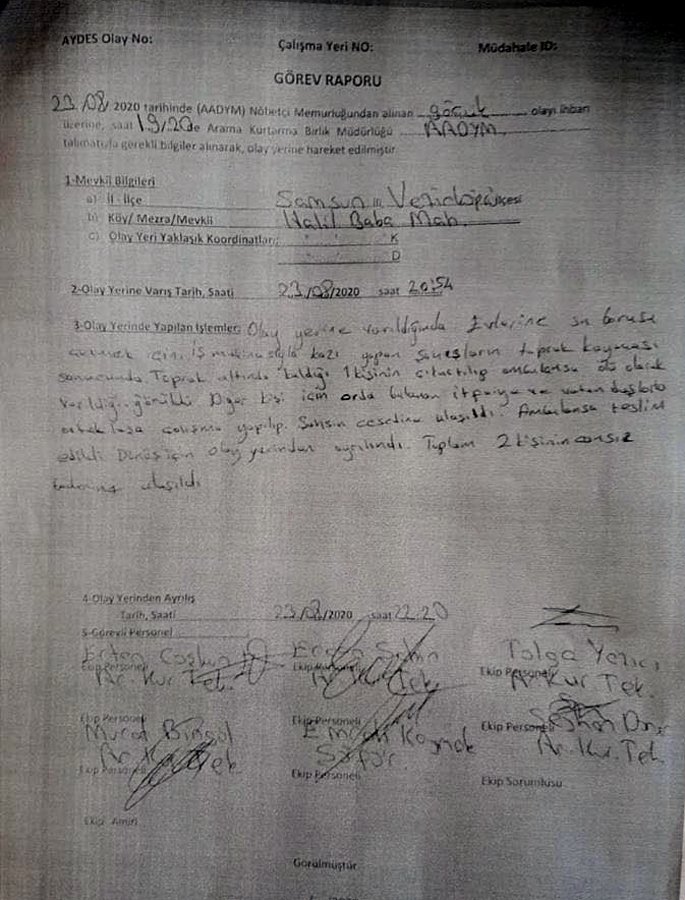 AYDES Olay No: Çalışma Yeri NO: Müdahale ID:
GÖREV RAPORU
23/08 2020 tarihinde (AADYM) Nöbetçi Memurluğundan alınan göçük olayı ihbarı
üzerine, saat 19/20de Arama Kurtarma Birlik Müdürlüğü AADYM
talimatıyla gerekli bilgiler alınarak, olay yerine hareket edilmiştir
1-Mevkii Bilgileri
a) İl - İlçe Samsun ili Vezirköprü ilçesi
b) Köy/ Mezra/Mevkii Halil Baba Mah.
c) Olay Yeri Yaklaşık Koordinatları K
D
2-Olay Yerine Varış Tarih, Saati 23/08/2020 saat 20:54
3-Olay Yerinde Yapılan İşlemler: Olay yerine varıldığında Evlerine su borusu
için iş makinasıyla kazı yapan şahısların toprak kayması
sonucunda Toprak altında kaldığı 1 kişinin çıkartılıp ambulansa olarak
görüldü Diğer kişi için orda bulunan itfaiye ve vatandaşlarla
çalışma yapılıp. Şahsın cesedine ulaşıldı. Ambulansa teslim
edildi Dönüş için olay yerinden ayrılındı. Toplam 2 kişinin cansız
ulaşıldı
4-Olay Yerinden Ayrılış
Tarih, Saati 23/08/2020 saat 22:20
5-Görevli Personel
Coşkun Tolga Yazıcı
Ekip Personeli Ekip Personeli Ekip Personeli
Ar. Kur Tek. Ar. Kur Tek. Ar. Kur Tek.
Ekip Personeli Ekip Personeli Ekip Personeli
Murat Bingöl
Şoför. Ar. Kur. Tek
Ekip Personeli Ekip Personeli Ekip Sorumlusu
Ekip Amiri
Görülmüştür